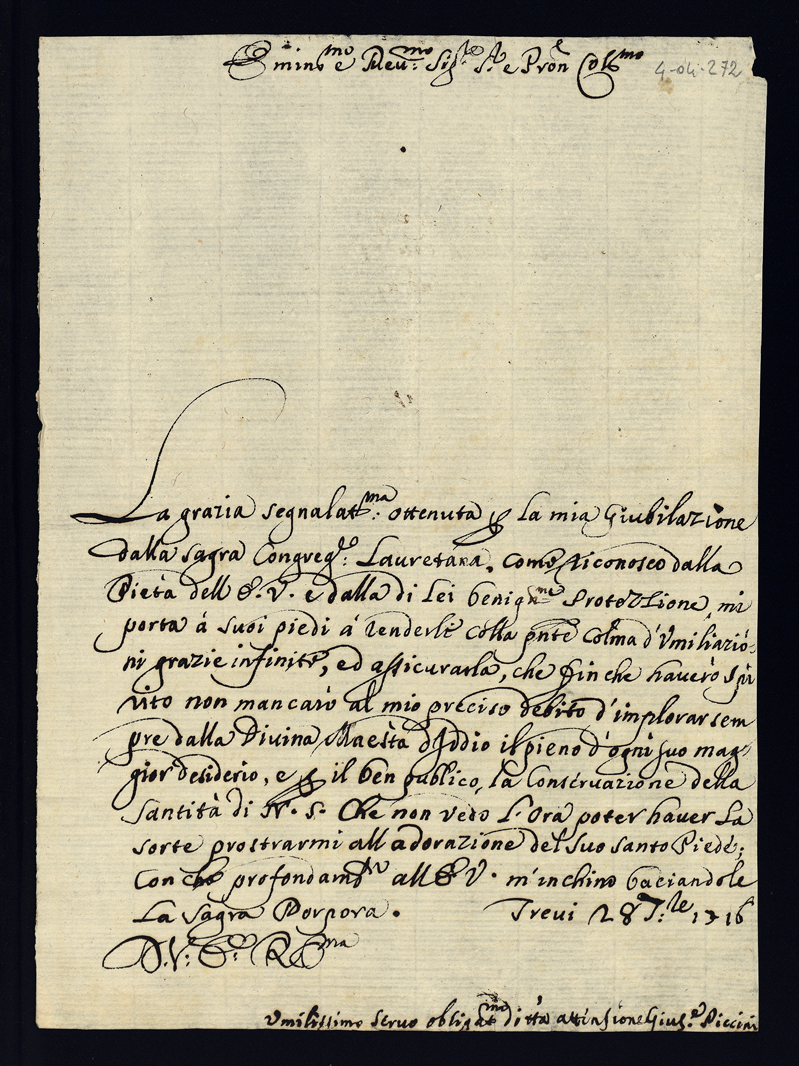 Emin.mo e Reu.mo Sig.re S.r e Pron Col.mo
4-oli-272
La grazia segnalat.ma ottenuta p la mia Giubilazione
dalla Sagra Congreg.e Lauretana, come riconosco dalla
Pietà dell E. V. e dalla di Lei benign.ma Protezzione, mi
porta à suoi piedi à renderle colla pnte colma d'Vmiliazio-
ni grazie infinite, ed assicurarla, che finche haverò Spi
rito non mancarò al mio preciso debito d'implorar sem
pre dalla Divina Maestà d'Iddio il pieno d'ogni suo mag-
gior desiderio, e p il ben publico, la Conservazione della
Santità di N. S. Che non vedo L'Ora poter haver La
sorte prostrarmi all adorazione del Suo Santo Piede;
Con che profondam.te all E V. m'inchino baciandole
La Sagra Porpora. Trevi 28 1716
D. V. E. R.ma
Vmilissimo Servo obligat.mo Gius.e Piccini